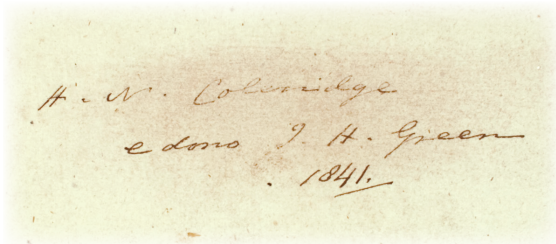 H. N. Coleridge
e dono J. H. Green
1841.